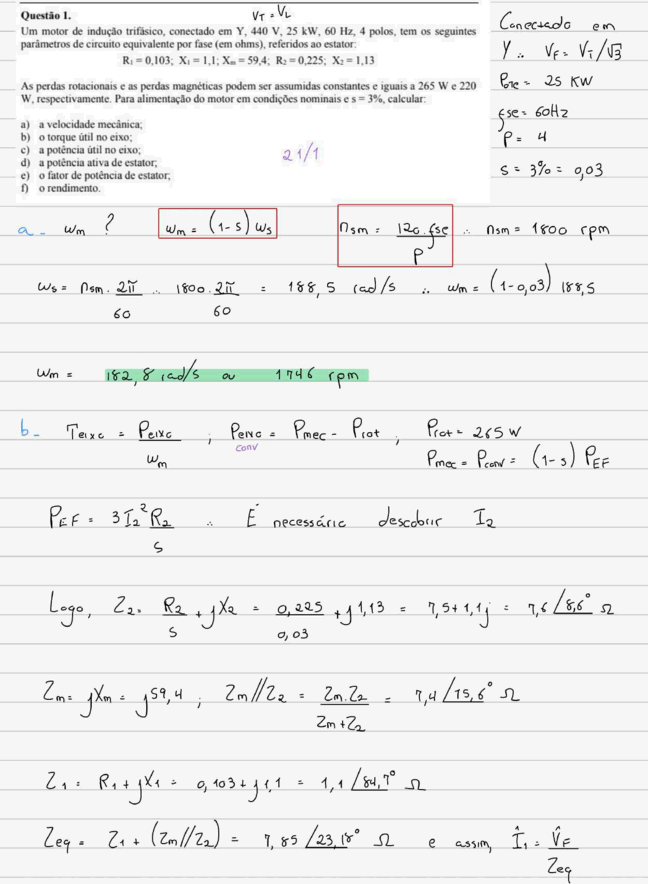 Questão 1.
V_T = V_L
Um motor de indução trifásico, conectado em Y, 440 V, 25 kW, 60 Hz, 4 polos, tem os seguintes
parâmetros de circuito equivalente por fase (em ohms), referidos ao estator:
R₁ = 0,103; X₁ = 1,1; Xₘ = 59,4; R₂ = 0,225; X₂ = 1,13
As perdas rotacionais e as perdas magnéticas podem ser assumidas constantes e iguais a 265 W e 220
W, respectivamente. Para alimentação do motor em condições nominais e s = 3%, calcular:
a) a velocidade mecânica;
b) o torque útil no eixo;
c) a potência útil no eixo;
d) a potência ativa de estator;
e) o fator de potência de estator;
f) o rendimento.
21/1
Conectado em
Y ∴ V_F = V_T/√3
25 KW
fse = 60Hz
P = 4
s = 3% = 0,03
a - ωm ? ωm = (1-s) ωs nsm = 120.fse/P ∴ nsm = 1800 rpm
ωs = nsm . 2π/60 ∴ 1800 . 2π/60 = 188,5 rad/s ∴ ωm = (1-0,03) 188,5
ωm = 182,8 rad/s ou 1746 rpm
b - Teixo = Peixo/ωm ; Peixo = Pmec - Prot ; Prot = 265 W
conv
Pmec = Pconv = (1-s) P_EF
P_EF = 3I₂²R₂/s ∴ É necessário descobrir I₂
Logo, Z₂ = R₂/s + jX₂ = 0,225/0,03 + j1,13 = 7,5 + 1,1j = 7,6 /8,6° Ω
Zm = jXm = j59,4 ; Zm//Z₂ = Zm.Z₂/Zm+Z₂ = 7,4 /15,6° Ω
Z₁ = R₁ + jX₁ = 0,103 + j1,1 = 1,1 /84,7° Ω
Zeq = Z₁ + (Zm//Z₂) = 7,85 /23,18° Ω e assim, Î₁ = V̂_F/Zeq